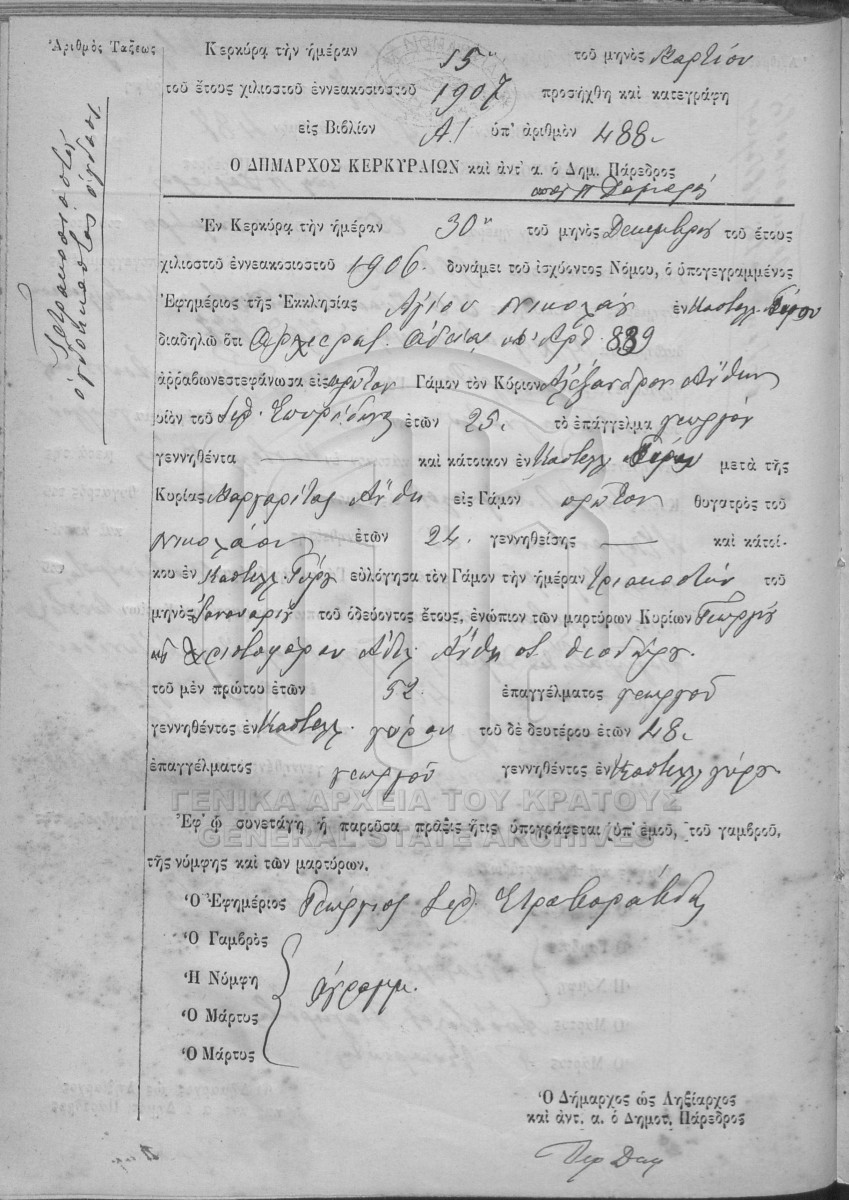 Ἀριθμὸς Τάξεως
Τετρακοσιοστὴ
ὀγδοηκοστὴ ὀγδόη
Κερκύρα τὴν ἡμέραν 15η τοῦ μηνὸς Μαρτίου
τοῦ ἔτους χιλιοστοῦ ἐννεακοσιοστοῦ 1907 προσήχθη καὶ κατεγράφη
εἰς Βιβλίον Α! ὑπ' ἀριθμὸν 488.
Ο ΔΗΜΑΡΧΟΣ ΚΕΡΚΥΡΑΙΩΝ καὶ ἀντ' α. ὁ Δημ. Πάρεδρος
Ἐν Κερκύρᾳ τὴν ἡμέραν 30η τοῦ μηνὸς Δεκεμβρίου τοῦ ἔτους
χιλιοστοῦ ἐννεακοσιοστοῦ 1906. δυνάμει τοῦ ἰσχύοντος Νόμου, ὁ ὑπογεγραμμένος
Ἐφημέριος τῆς Ἐκκλησίας Ἁγίου Νικολάου ἐν Καστελλ. Γύρου
διαδηλῶ ὅτι Ἀρχιερατ. ἀδείας ὑπ' Ἀρθ. 889
ἀρραβωνεστεφάνωσα εἰς πρῶτον Γάμον τὸν Κύριον Ἀλέξανδρον Ἄνθην
υἱὸν τοῦ Σπυρίδωνα ἐτῶν 25. τὸ ἐπάγγελμα γεωργὸν
γεννηθέντα καὶ κάτοικον ἐν Καστελλ. Γύρου μετὰ τῆς
Κυρίας Μαργαρίτας Ἄνθη εἰς Γάμον πρῶτον θυγατρὸς τοῦ
Νικολάου ἐτῶν 24. γεννηθείσης καὶ κατοί-
κου ἐν Καστελλ. Γύρου εὐλόγησα τὸν Γάμον τὴν ἡμέραν τριακοστὴν τοῦ
μηνὸς Ἰανουαρίου τοῦ ὁδεύοντος ἔτους, ἐνώπιον τῶν μαρτύρων Κυρίων Γεωργίου
καὶ Χριστοφόρου Ἀδελ. Ἄνθη Θεοδώρου.
τοῦ μὲν πρώτου ἐτῶν 52. ἐπαγγέλματος γεωργοῦ
γεννηθέντος ἐν Καστελλ. γύρου τοῦ δὲ δευτέρου ἐτῶν 48.
ἐπαγγέλματος γεωργοῦ γεννηθέντος ἐν Καστελλ γύρου
ΓΕΝΙΚΑ ΑΡΧΕΙΑ ΤΟΥ ΚΡΑΤΟΥΣ
Ἐφ' ᾧ συνετάγη ἡ παροῦσα πρᾶξις ἥτις ὑπογράφεται ὑπ' ἐμοῦ, τοῦ γαμβροῦ,
GENERAL STATE ARCHIVES
τῆς νύμφης καὶ τῶν μαρτύρων.
Ὁ Ἐφημέριος Γεώργιος
Ὁ Γαμβρὸς
Ἡ Νύμφη ἀγράμμ.
Ὁ Μάρτυς
Ὁ Μάρτυς
Ὁ Δήμαρχος ὡς Ληξίαρχος
καὶ ἀντ. α. ὁ Δημοτ. Πάρεδρος